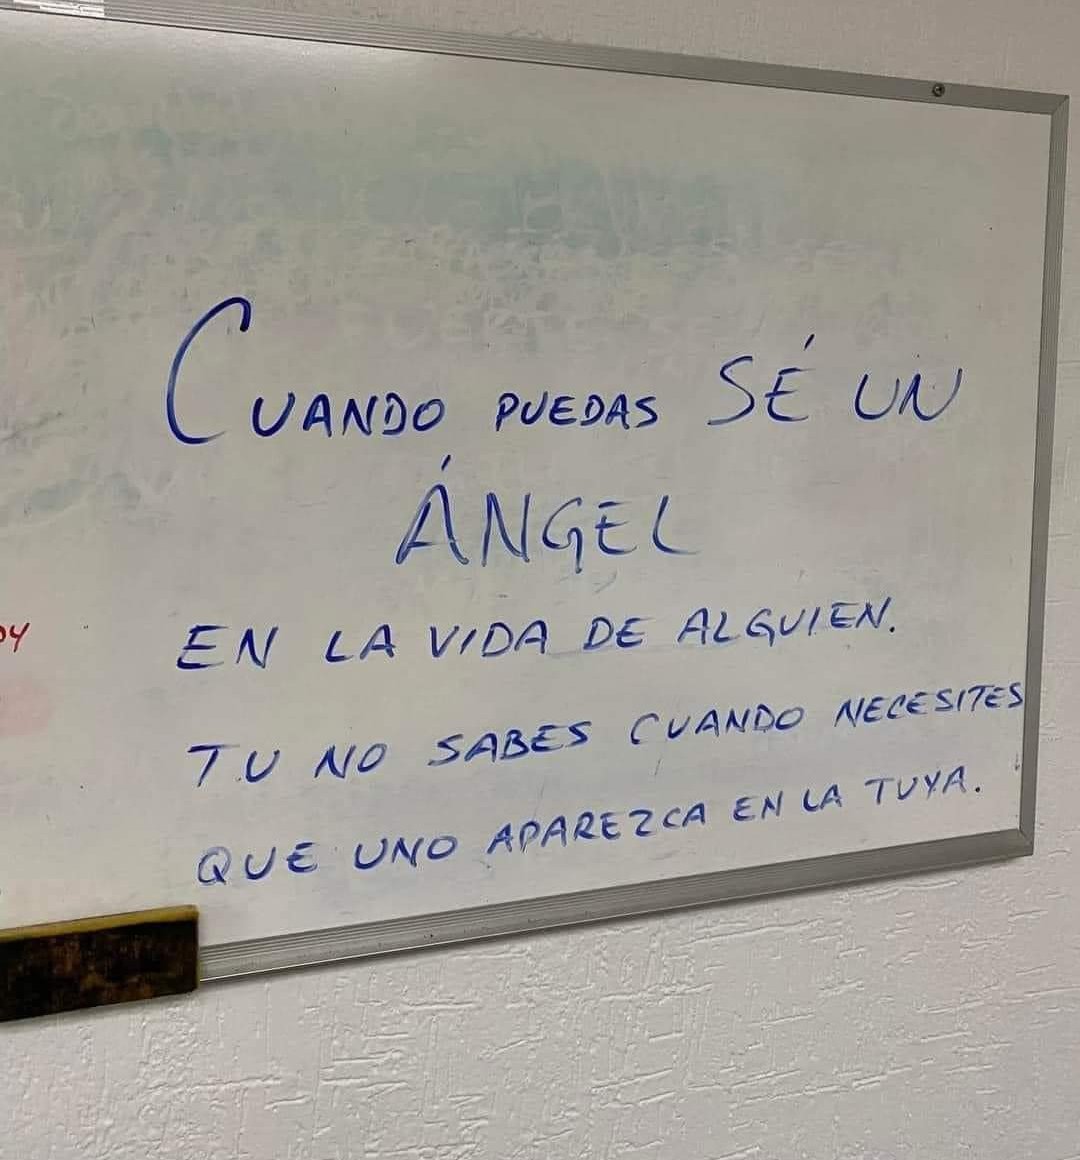 CUANDO PUEDAS SÉ UN
ÁNGEL
EN LA VIDA DE ALGUIEN.
TU NO SABES CUANDO NECESITES
QUE UNO APAREZCA EN LA TUYA.